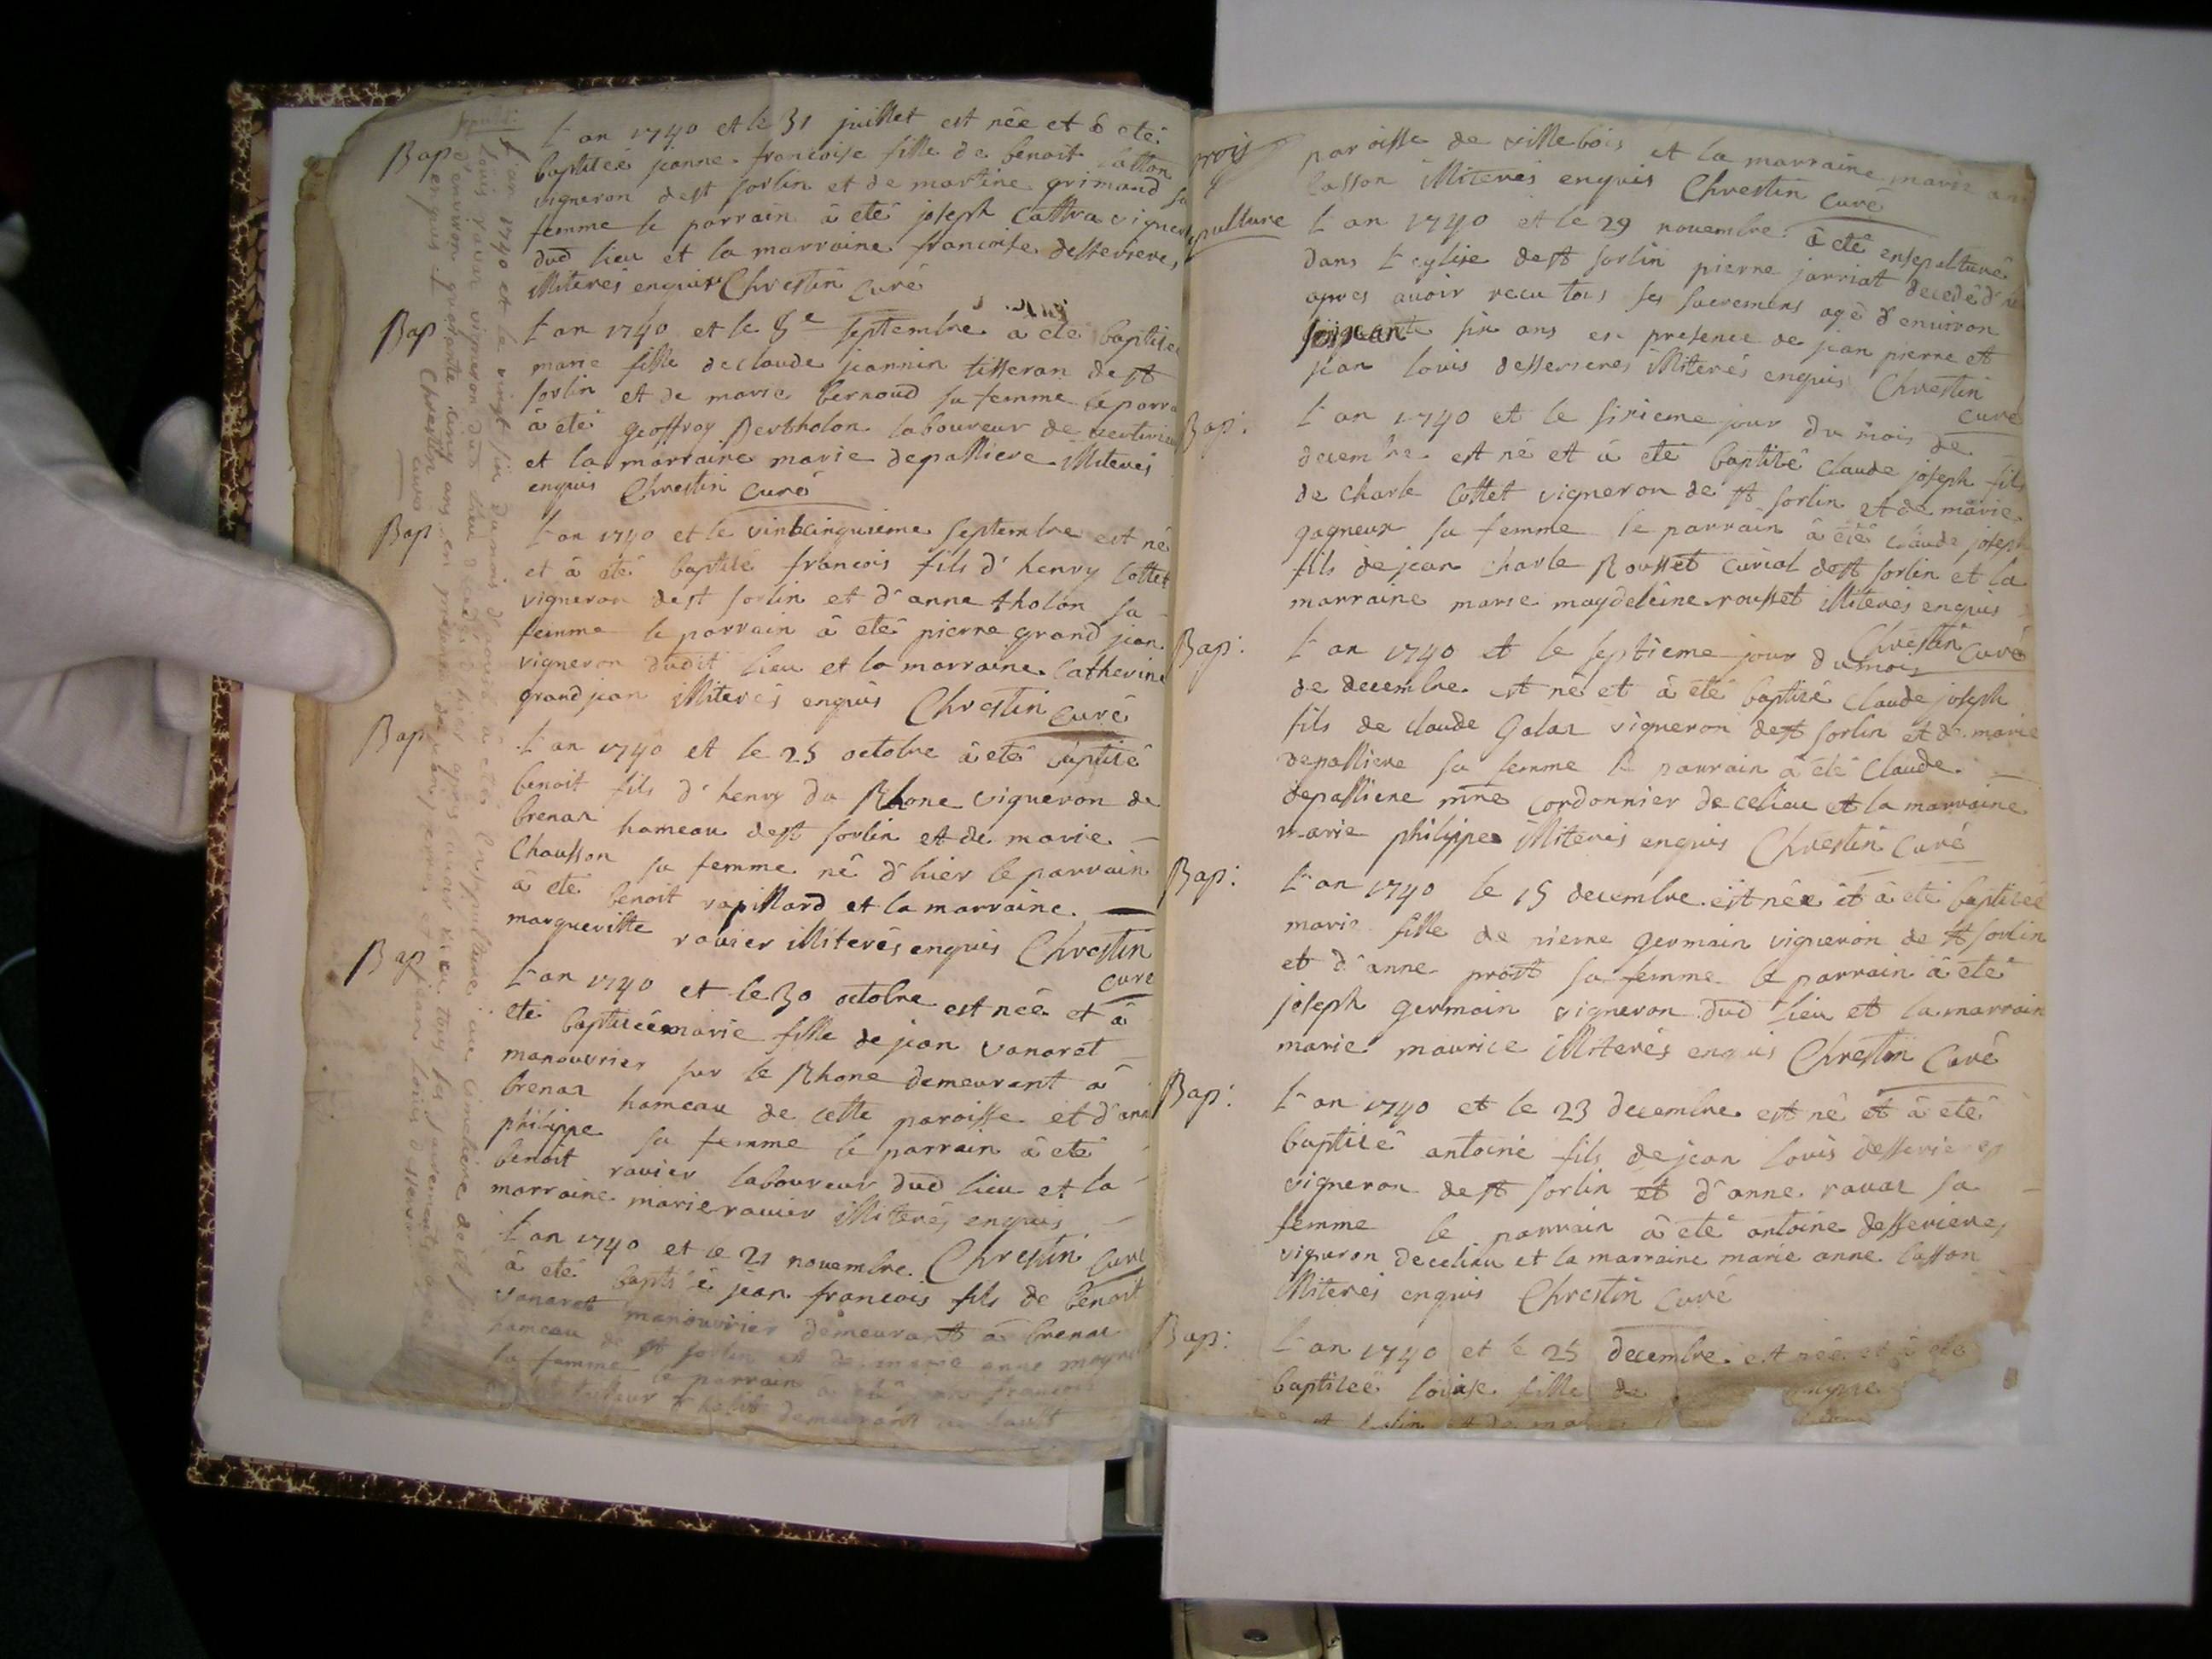 Bap
L'an 1740 et le 31 juillet est née et à eté
baptiseé jeanne francoise fille de benoit
vigneron de st sorlin et de martine grimand sa
femme le parrain à eté joseph vigneron
dud lieu et la marraine francoise desserieres
illiterés enquis Chrestin curé
Bap
L'an 1740 et le 8e septembre a eté baptisee
marie fille de claude jeannin tisseran de st
sorlin et de marie bernoud sa femme le parra
à eté geoffroy Bertholon laboureur de
et la marraine marie depalliere illiterés
enquis Chrestin curé
Bap
L'an 1740 et le vintcinquieme septembre est né
et à eté baptisé francois fils d'henry Cottet
vigneron de st sorlin et d'anne tholon sa
femme le parrain à eté pierre grand jean
vigneron dudit lieu et la marraine Catherine
grand jean illiterés enquis Chrestin curé
Bap
L'an 1740 et le 25 octobre à eté baptisé
benoit fils d'henry du Rhone vigneron de
brenaz hameau de st sorlin et de marie
Chausson sa femme né d'hier le parrain
à eté benoit rapillard et la marraine
margueritte ravier illiterés enquis Chrestin
curé
Bap
L'an 1740 et le 30 octobre est née et à
eté baptiseé marie fille de jean vanaret
manouvrier sur le Rhone demeurant à
brenaz hameau de cette paroisse et d'ann
philippe sa femme le parrain à eté
benoit ravier laboureur dud lieu et la
marraine marie ravier illiterés enquis
Chrestin curé
L'an 1740 et le 21 novembre
à eté baptisé jean francois fils de benoit
vanaret manouvrier demeurant à brenaz
hameau de st sorlin et de marie anne
sa femme le parrain à eté jean francois
demeurant
L'an 1740 et le vingt six du mois à eté ensepulturé au cimetiere de st
Louis ravaz vigneron dud lieu decedé d'hier apres avoir recu tous les sacrements agé
d'environ quarante cinq ans en presence de et jean louis
enquis Chrestin curé
paroisse de villebois et la marraine marie an
Casson illiterés enquis Chrestin curé
sepulture
L'an 1740 et le 29 novembre à eté ensepulturé
dans l'eglise de st sorlin pierre jarriat decedé d'hi
apres avoir recu tous ses sacremens agé d'environ
soixante six ans en presence de jean pierre et
jean louis desserieres illiterés enquis Chrestin
curé
Bap:
L'an 1740 et le sixieme jour du mois de
decembre est né et à eté baptisé Claude joseph fils
de charle Cottet vigneron de st sorlin et de marie
gagneux sa femme le parrain à eté claude joseph
fils de jean charle Rousset curial de st sorlin et la
marraine marie magdeleine rousset illiterés enquis
Chrestin curé
Bap:
L'an 1740 et le septieme jour du mois
de decembre est né et à eté baptisé Claude joseph
fils de claude Galaz vigneron de st sorlin et de marie
depalliere sa femme le parrain à eté Claude
depalliere mre cordonnier de ce lieu et la marraine
marie philippes illiterés enquis Chrestin Curé
Bap:
L'an 1740 le 15 decembre est née et à eté baptiseé
marie fille de pierre germain vigneron de st sorlin
et d'anne prost sa femme le parrain à eté
joseph germain vigneron dud lieu et la marrain
marie maurice illiterés enquis Chrestin Curé
Bap:
L'an 1740 et le 23 decembre est né et à eté
baptisé antoine fils de jean louis desserieres
vigneron de st sorlin et d'anne ravaz sa
femme le parrain à eté antoine desserieres
vigneron de ce lieu et la marraine marie anne Casson
illiterés enquis Chrestin Curé
Bap:
L'an 1740 et le 25 decembre est née et à eté
baptiseé louise fille de
st sorlin et de